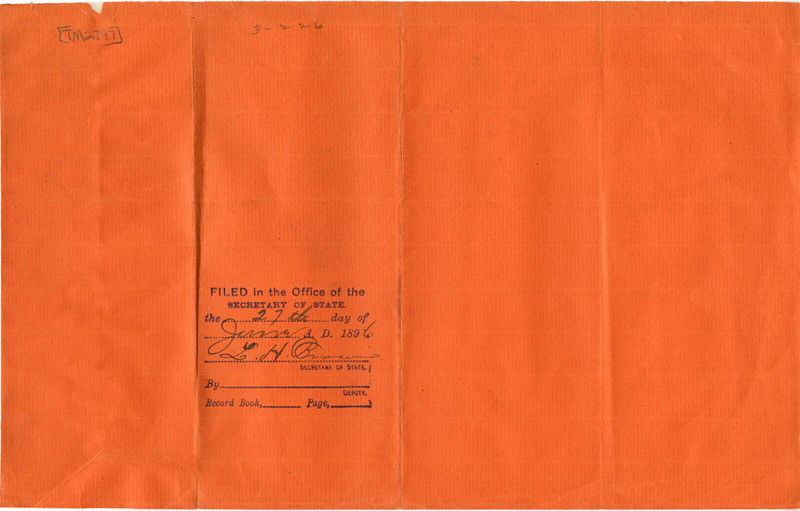 [TM2797]
3-2 26
FILED in the Office of the
SECRETARY OF STATE.
the 27th day of
June A. D. 1896
L. H. Brown
SECRETARY OF STATE.
By
DEPUTY.
Record Book, Page,